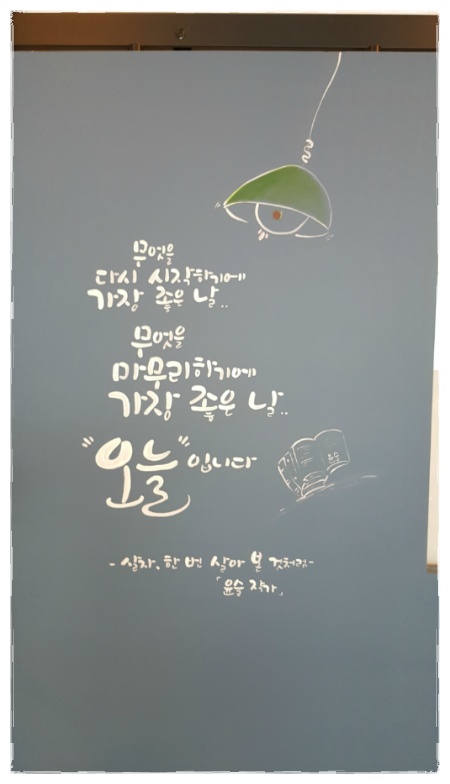 무엇을
다시 시작하기에
가장 좋은 날..
무엇을
마무리하기에
가장 좋은 날..
"오늘"입니다
윤슬
- 살자, 한 번 살아 본 것처럼-
「윤슬 작가」